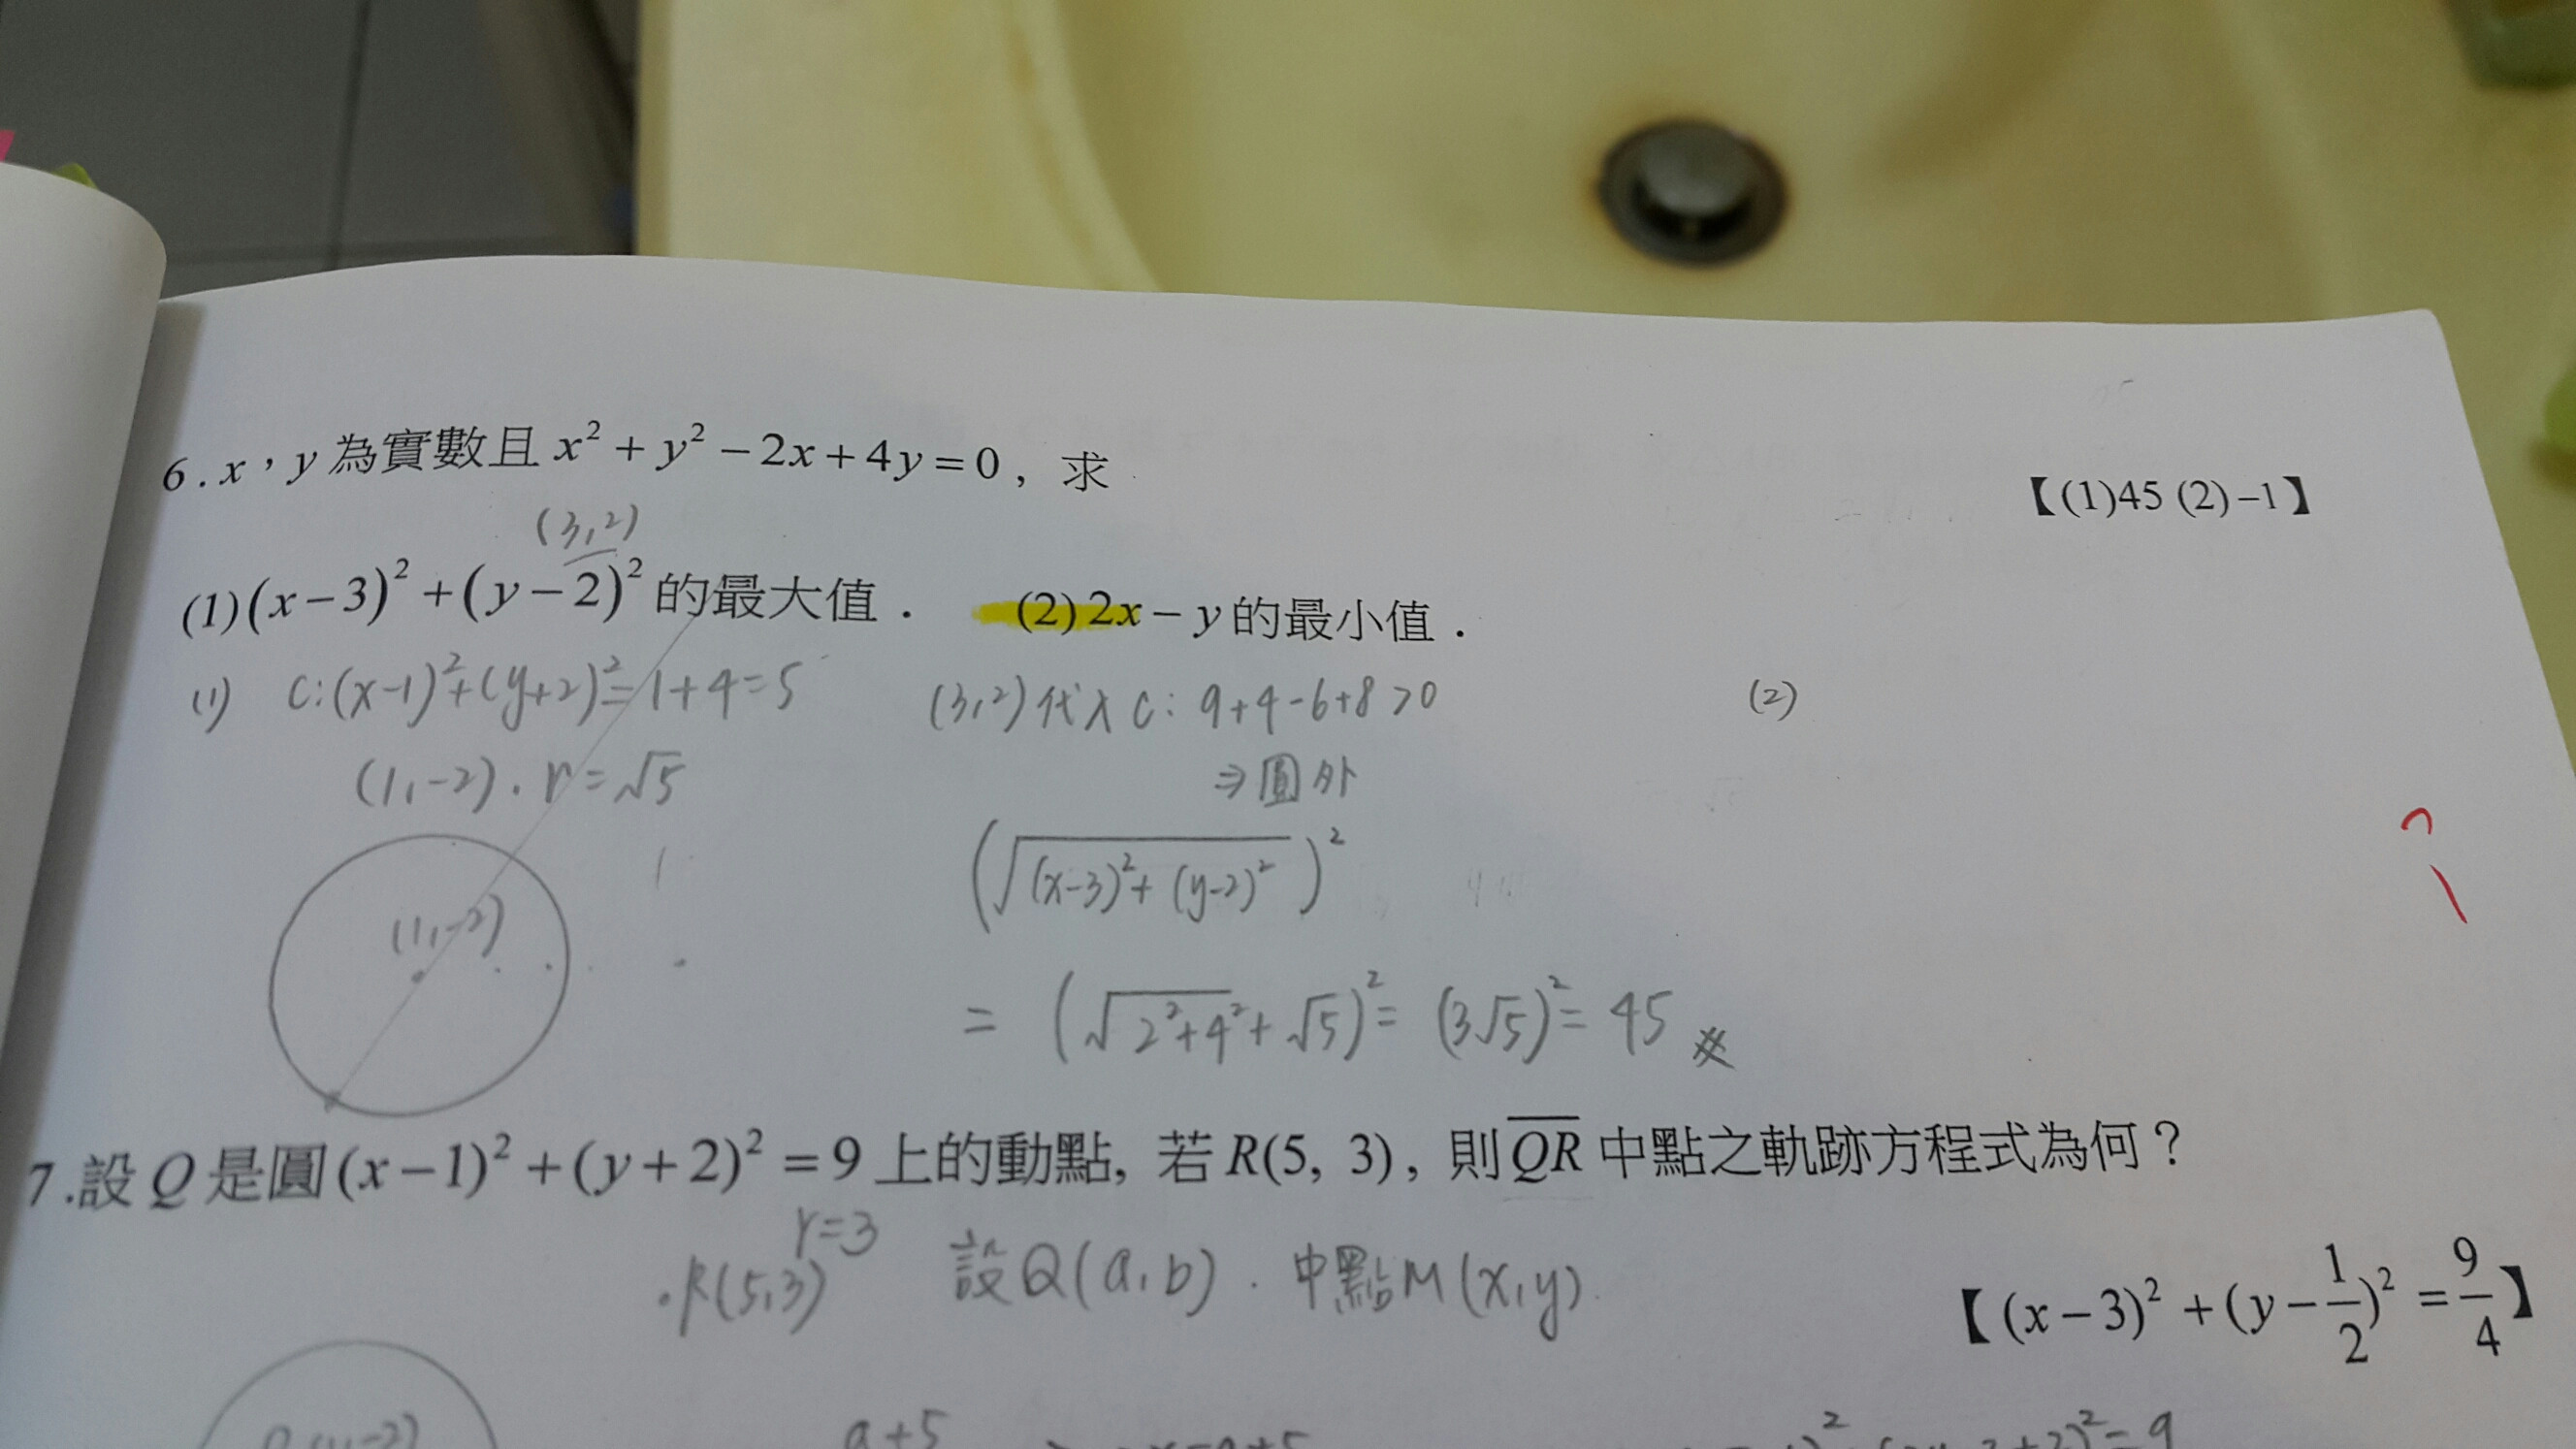 6. x，y 為實數且 x² + y² − 2x + 4y = 0, 求
【(1)45 (2)−1】
(3,2)
(1)(x−3)² + (y−2)² 的最大值． (2) 2x − y 的最小值．
(1) C:(x-1)²+(y+2)²=1+4=5 (3,2)代入C: 9+4-6+8>0 (2)
(1,-2). r=√5 ⇒圓外
(√((x-3)²+(y-2)²))²
(1,-2)
= (√(2²+4²)+√5)² = (3√5)² = 45
7.設 Q 是圓 (x−1)² + (y+2)² = 9 上的動點, 若 R(5, 3), 則 QR 中點之軌跡方程式為何？
r=3
.R(5,3) 設Q(a,b). 中點M(x,y)
【(x−3)² + (y−1/2)² = 9/4】
a+5